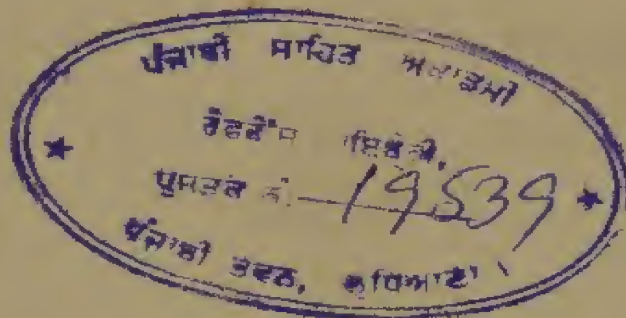 ਪੰਜਾਬੀ ਸਾਹਿਤ ਅਕਾਡਮੀ
ਰੈਫਰੈਂਸ ਲਾਇਬ੍ਰੇਰੀ,
ਪੁਸਤਕ ਨੰ. 19539
ਪੰਜਾਬੀ ਭਵਨ, ਲੁਧਿਆਣਾ।